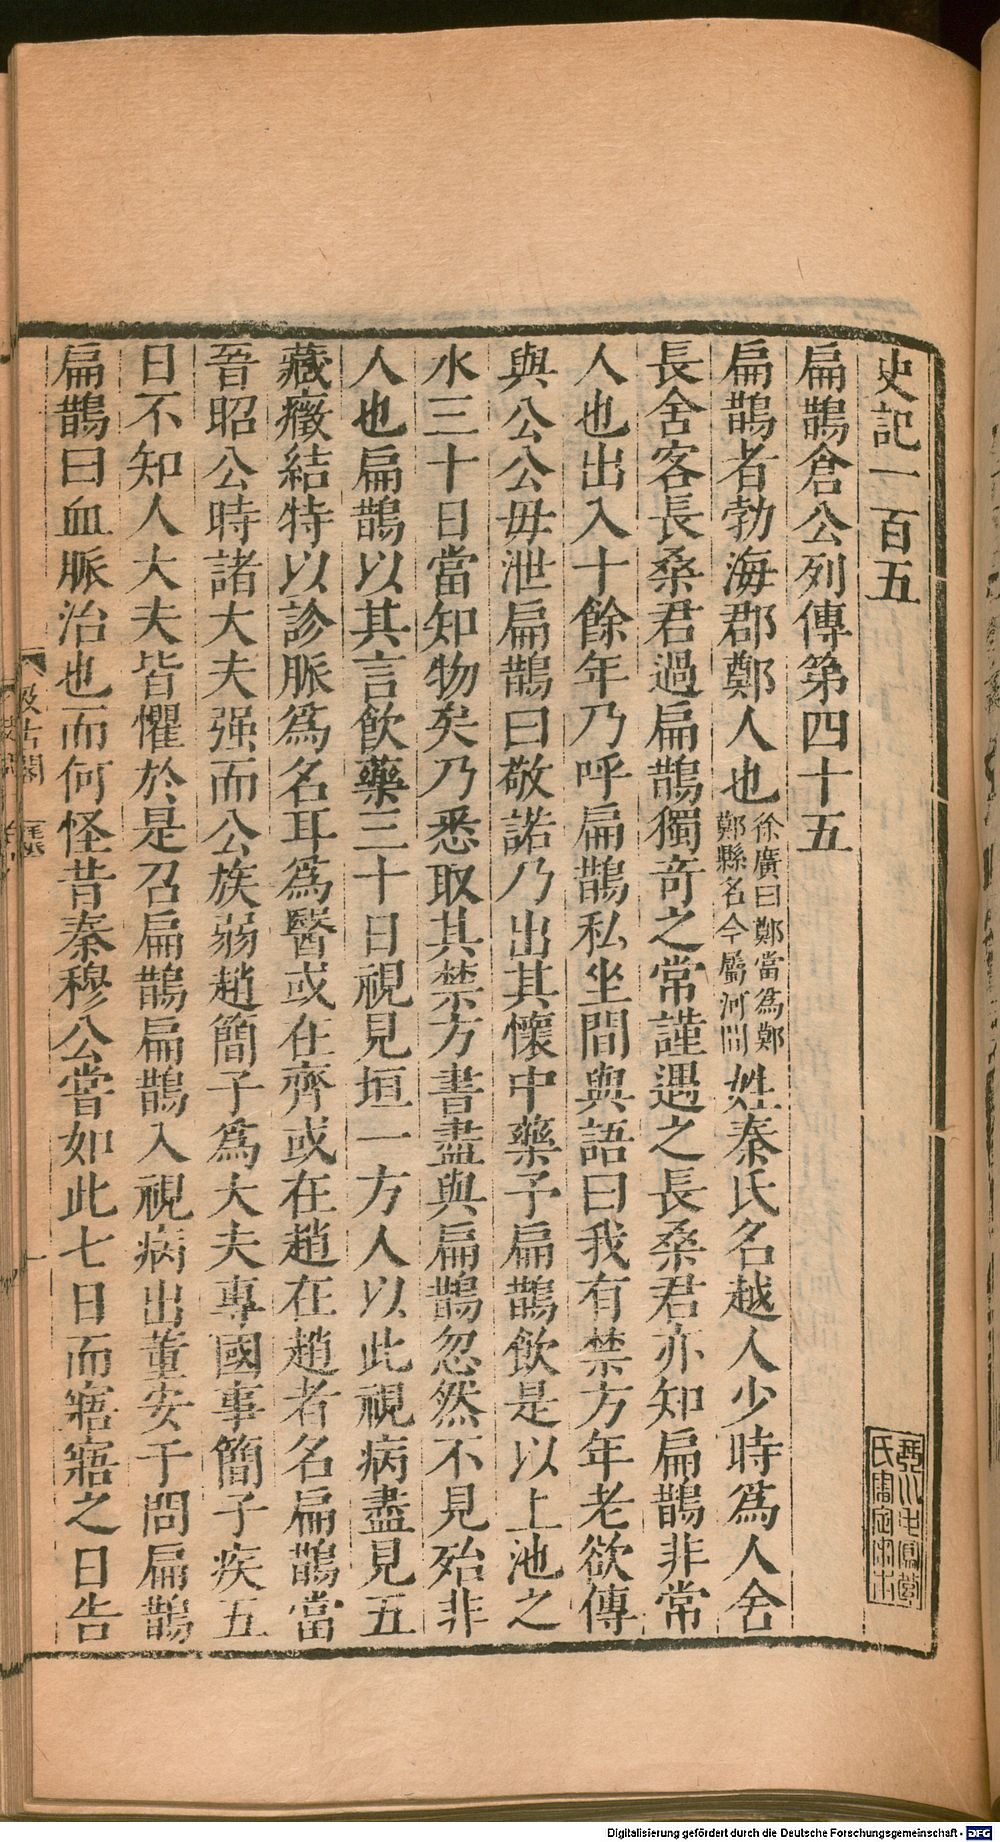 史記一百五
扁鵲倉公列傳第四十五
扁鵲者勃海郡鄭人也徐廣曰鄭當爲鄚鄚縣名今屬河間姓秦氏名越人少時爲人舍
長舍客長桑君過扁鵲獨奇之常謹遇之長桑君亦知扁鵲非常
人也出入十餘年乃呼扁鵲私坐間與語曰我有禁方年老欲傳
與公公毋泄扁鵲曰敬諾乃出其懷中藥予扁鵲飲是以上池之
水三十日當知物矣乃悉取其禁方書盡與扁鵲忽然不見殆非
人也扁鵲以其言飲藥三十日視見垣一方人以此視病盡見五
藏癥結特以診脈爲名耳爲醫或在齊或在趙在趙者名扁鵲當
晉昭公時諸大夫强而公族弱趙簡子爲大夫專國事簡子疾五
日不知人大夫皆懼於是召扁鵲扁鵲入視病出董安于問扁鵲
扁鵲曰血脈治也而何怪昔秦穆公嘗如此七日而寤寤之日告
汲古閣
毛氏
Digitalisierung gefördert durch die Deutsche Forschungsgemeinschaft - DFG